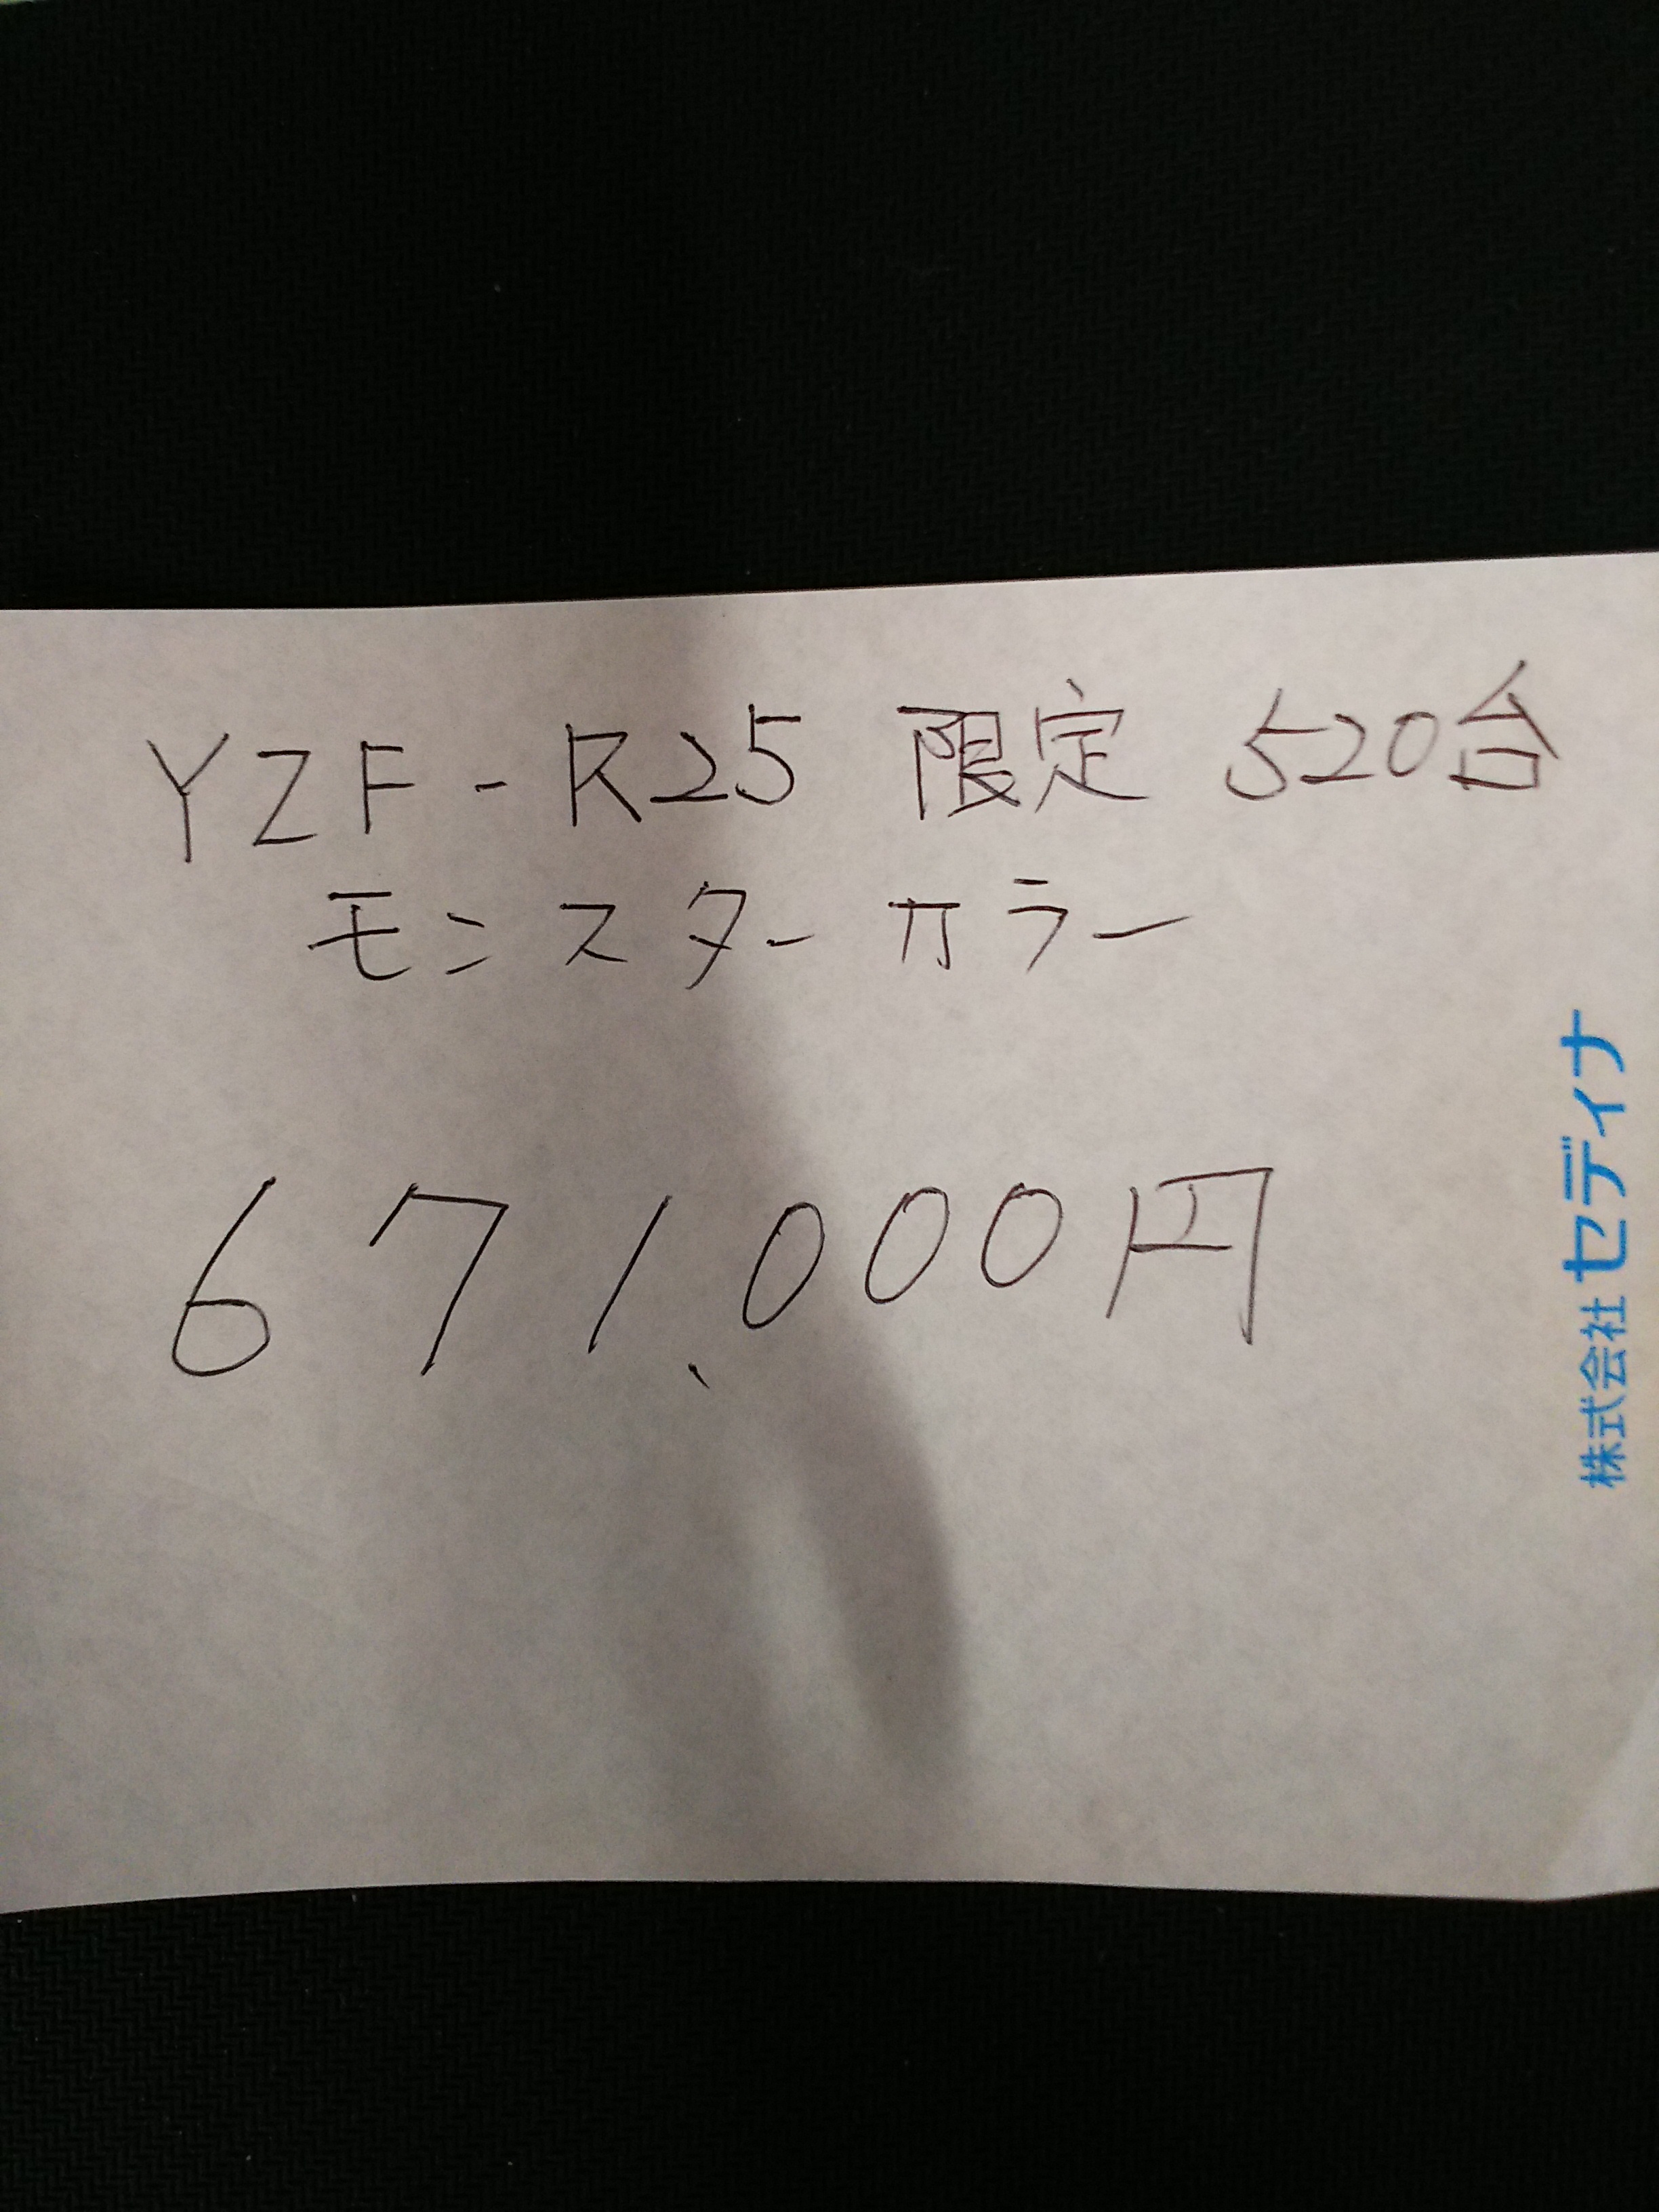 YZF-R25 限定 520台
モンスターカラー
671,000円
株式会社 セディナ